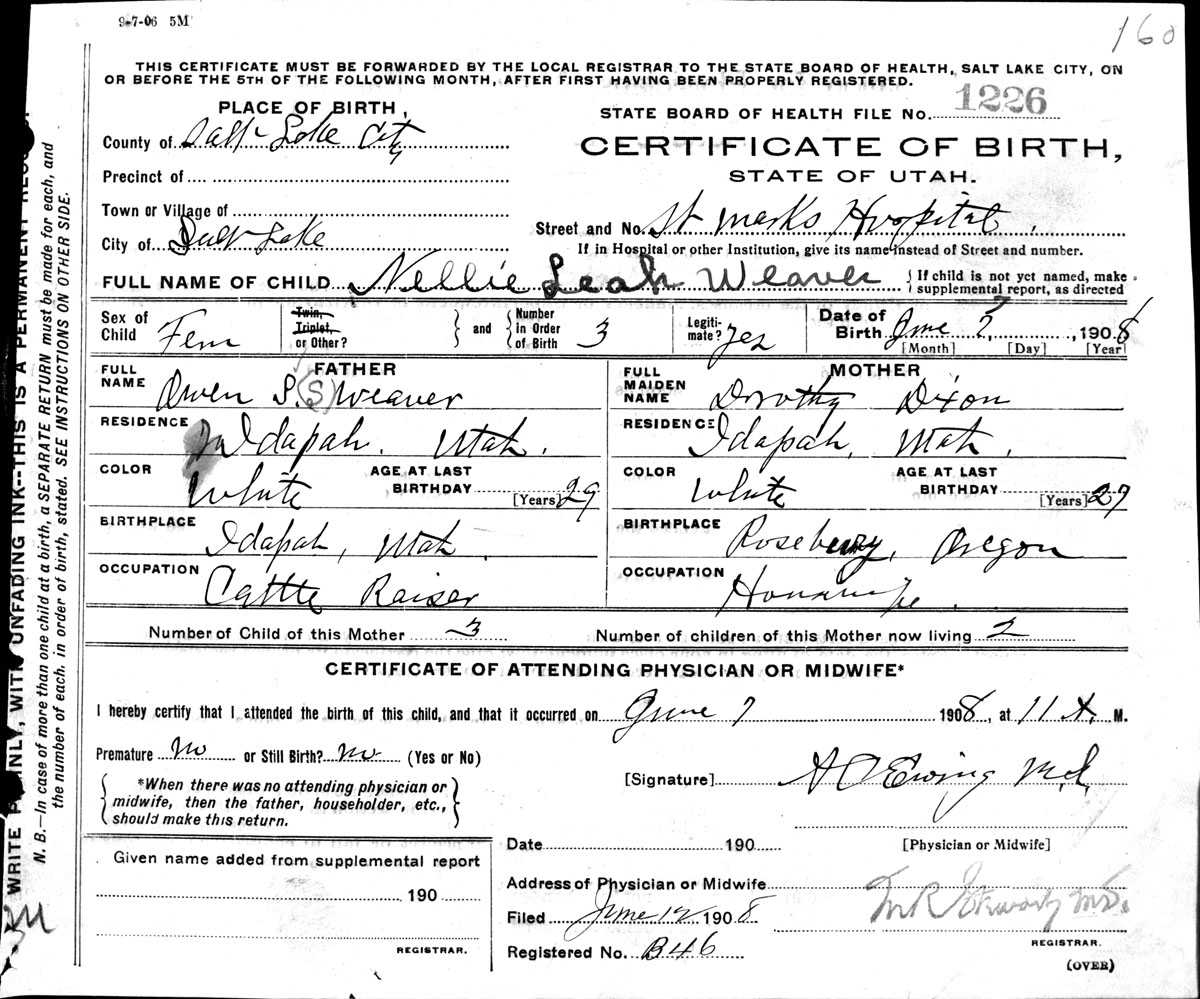 9-7-06 5M
160
THIS CERTIFICATE MUST BE FORWARDED BY THE LOCAL REGISTRAR TO THE STATE BOARD OF HEALTH, SALT LAKE CITY, ON
OR BEFORE THE 5TH OF THE FOLLOWING MONTH, AFTER FIRST HAVING BEEN PROPERLY REGISTERED.
PLACE OF BIRTH,
STATE BOARD OF HEALTH FILE No. 1226
County of Salt Lake City
CERTIFICATE OF BIRTH,
Precinct of
STATE OF UTAH.
Town or Village of
Street and No. St Marks Hospital
City of Salt Lake
If in Hospital or other Institution, give its name instead of Street and number.
FULL NAME OF CHILD Nellie Leah Weaver { If child is not yet named, make supplemental report, as directed
Sex of Child Fem
Twin, Triplet, or Other? } and { Number in Order of Birth 3
Legitimate? Yes
Date of Birth June 7, 1908
[Month] [Day] [Year]
FATHER
FULL NAME Owen S. (S) Weaver
RESIDENCE Idapah. Utah.
COLOR White AGE AT LAST BIRTHDAY [Years] 29
BIRTHPLACE Idapah, Utah.
OCCUPATION Cattle Raiser
MOTHER
FULL MAIDEN NAME Dorothy Dixon
RESIDENCE Idapah, Utah.
COLOR White AGE AT LAST BIRTHDAY [Years] 27
BIRTHPLACE Roseberry, Oregon
OCCUPATION Housewife.
Number of Child of this Mother 3 Number of children of this Mother now living 2
CERTIFICATE OF ATTENDING PHYSICIAN OR MIDWIFE*
I hereby certify that I attended the birth of this child, and that it occurred on June 7 1908, at 11 A. M.
Premature no or Still Birth? no (Yes or No)
[Signature] Ewing M.D.
*When there was no attending physician or
midwife, then the father, householder, etc.,
should make this return.
Date 190 [Physician or Midwife]
Given name added from supplemental report
190
REGISTRAR.
Address of Physician or Midwife
Filed June 12 1908
M.D.
REGISTRAR.
Registered No. B46
(OVER)
WRITE PLAINLY, WITH UNFADING INK--THIS IS A PERMANENT
N. B.—In case of more than one child at a birth, a SEPARATE RETURN must be made for each, and
the number of each, in order of birth, stated. SEE INSTRUCTIONS ON OTHER SIDE.